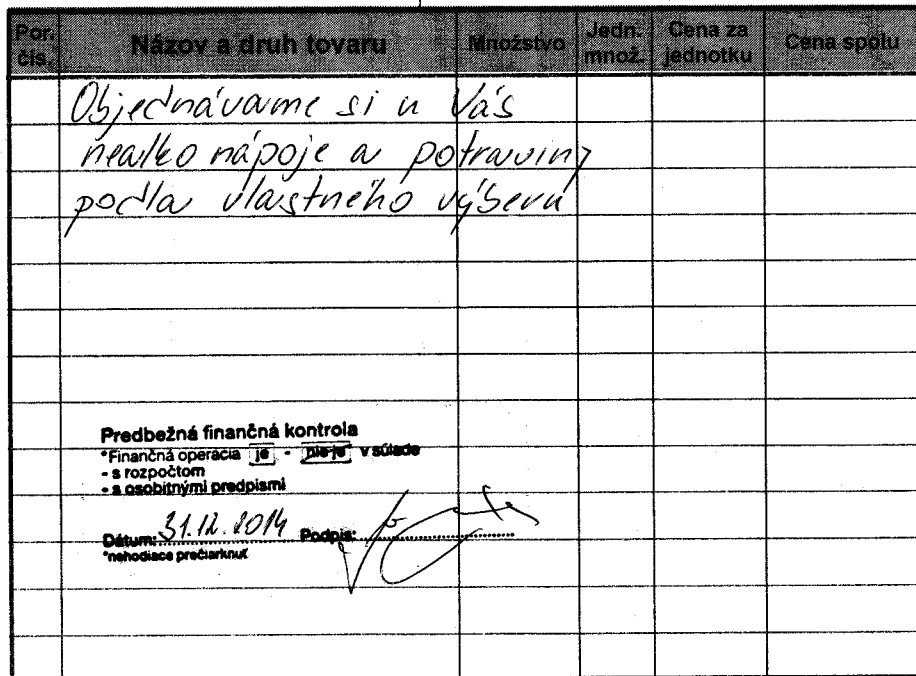 Por. čís. Názov a druh tovaru Množstvo Jedn. množ. Cena za jednotku Cena spolu
Objednávame si u Vás
nealko nápoje a potraviny
podla vlastného výberu
Predbežná finančná kontrola
*Finančná operácia je - nie je v súlade
- s rozpočtom
- s osobitnými predpismi
Dátum: 31.12.2014 Podpis:
*nehodiace prečiarknuť